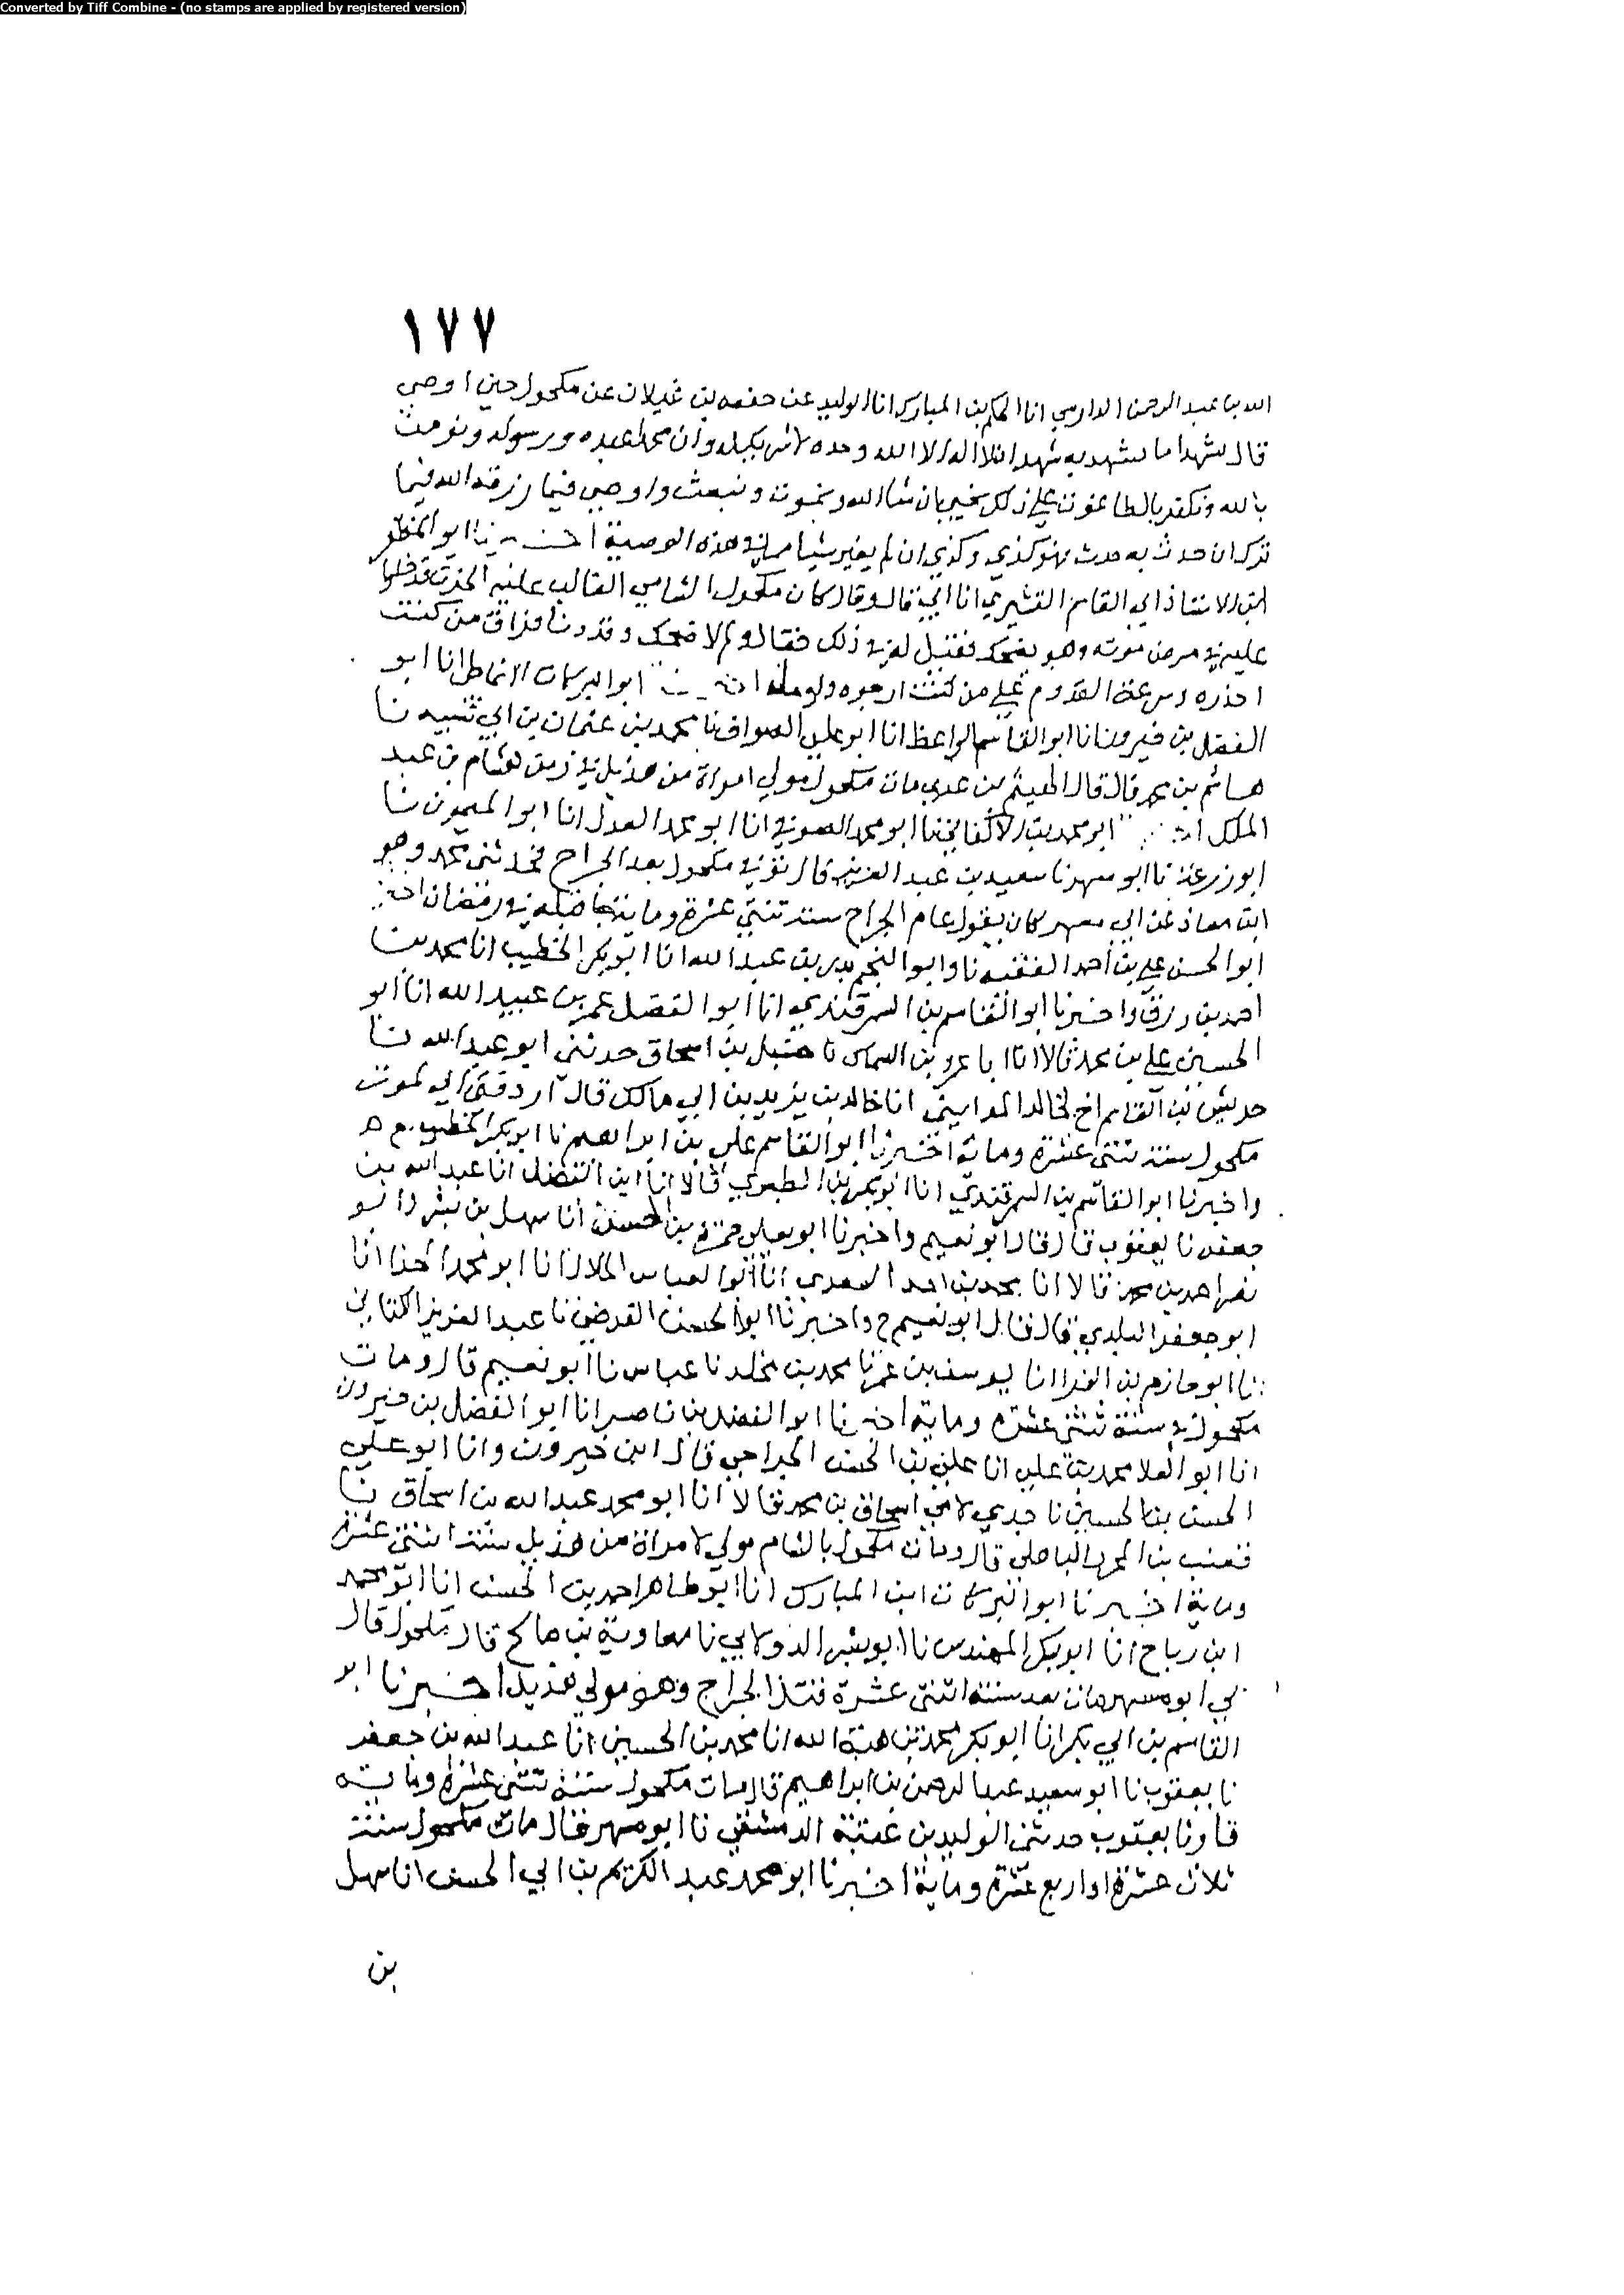 Converted by Tiff Combine - (no stamps are applied by registered version)
١٧٧
الله بن عبد الرحمن الدارمي انا الحكم بن المبارك انا الوليد عن حفص بن غيلان عن مكحول حين اوصي
قال نشهد ما نشهد به شهد ان لا اله الا الله وحده لا شريك له وان محمدا عبده ورسوله ونومن
بالله ونكفر بالطاغوت علي ذلك نحيي ان شا الله ونموت ونبعث واوصي فيما رزقه الله فيما
ترك ان حدث به حدث فهو كذي وكذي ان لم يغير شيا مما في هذه الوصية اخبرنا ابو المظفر
ابن الاستاذ ابي القاسم القشيري انا ابي قال وقال كان مكحول الشامي الغالب عليه الحزن فدخلوا
عليه في مرض موته وهو يضحك فقيل له في ذلك فقال ولم لا اضحك وقد دنا فراق من كنت
احذره وسرعة القدوم علي من كنت ارجوه واومله اخبرنا ابو البركات الانماطي انا ابو
الفضل بن خيرون انا ابو القاسم الواعظ انا ابو علي الصواف نا محمد بن عثمان بن ابي شيبه نا
هاشم بن محمد قال قال الهيثم بن عدي مات مكحول مولي امراة من هذيل في زمن هشام بن عبد
الملك اخبرنا ابو محمد بن الاكفاني نا ابو محمد الصوفي انا ابو محمد العدل انا ابو الميمون نا
ابو زرعة نا ابو مسهر نا سعيد بن عبد العزيز قال توفي مكحول بعد الجراح فحدثني محمد وهو
ابن معاذ عن ابي مسهر كان يقول عام الجراح سنة ثنتي عشرة وماية في رمضان
ابو الحسن علي بن احمد الفقيه نا وابو النجم بدر بن عبد الله انا ابو بكر الخطيب انا محمد بن
احمد بن رزق واخبرنا ابو القاسم بن السمرقندي انا ابو الفضل عمر بن عبيد الله انا ابو
الحسين علي بن محمد قالا انا ابا عمرو بن السماك نا حنبل بن اسحاق حدثني ابو عبد الله نا
خالد المدايني انا خالد بن يزيد بن ابي مالك قال اردفني ابي لموت
مكحول سنة ثنتي عشرة ومائة اخبرنا ابو القاسم علي بن ابراهيم نا ابو بكر الخطيب ح
واخبرنا ابو القاسم بن السمرقندي انا ابو بكر بن الطبري قالا انا ابن الفضل انا عبد الله بن
جعفر نا يعقوب قال قال ابو نعيم واخبرنا ابو يعلي حمزة بن الحسن انا سهل بن بشر وابو
نصر احمد بن محمد قالا انا محمد بن احمد السعدي انا ابو العباس انا ابو محمد انا
ابو جعفر البلدي قال قال ابو نعيم ح واخبرنا ابو الحسن الفرضي نا عبد العزيز الكتاني
نا ابو حازم بن الفرا انا يوسف بن عمر نا محمد بن مخلد نا عباس نا ابو نعيم قال ومات
مكحول في سنة ثنتي عشرة وماية اخبرنا ابو الفضل بن ناصر انا ابو الفضل بن خيرون
انا ابو العلا محمد بن علي انا علي بن الحسن الجراحي قال ابن خيرون وانا ابو علي
الحسن بن الحسين نا جدي لامي اسحاق بن محمد قالا انا ابو محمد عبد الله بن اسحاق نا
قعنب بن المحرر الباهلي قال ومات مكحول بالشام مولي لامراة من هذيل سنة اثنتي عشرة
وماية اخبرنا ابو البركات ابن المبارك انا ابو طاهر احمد بن الحسن انا ابو محمد
ابن رباح انا ابو بكر المهندس نا ابو بشر الدولابي نا معاوية بن صالح قال مكحول قال
لي ابو مسهر مات بعد سنة اثنتي عشرة قتل الجراح وهو مولي هذيل اخبرنا ابو
القاسم بن ابي بكر انا ابو بكر محمد بن هبة الله انا محمد بن الحسين انا عبد الله بن جعفر
نا يعقوب نا ابو سعيد عبد الرحمن بن ابراهيم قال مات مكحول سنة ثنتي عشرة وماية
قال ونا يعقوب حدثني الوليد بن عتبة الدمشقي نا ابو مسهر قال مات مكحول سنة
ثلاث عشرة او اربع عشرة وماية اخبرنا ابو محمد عبد الكريم بن ابي الحسن انا سهل
بن